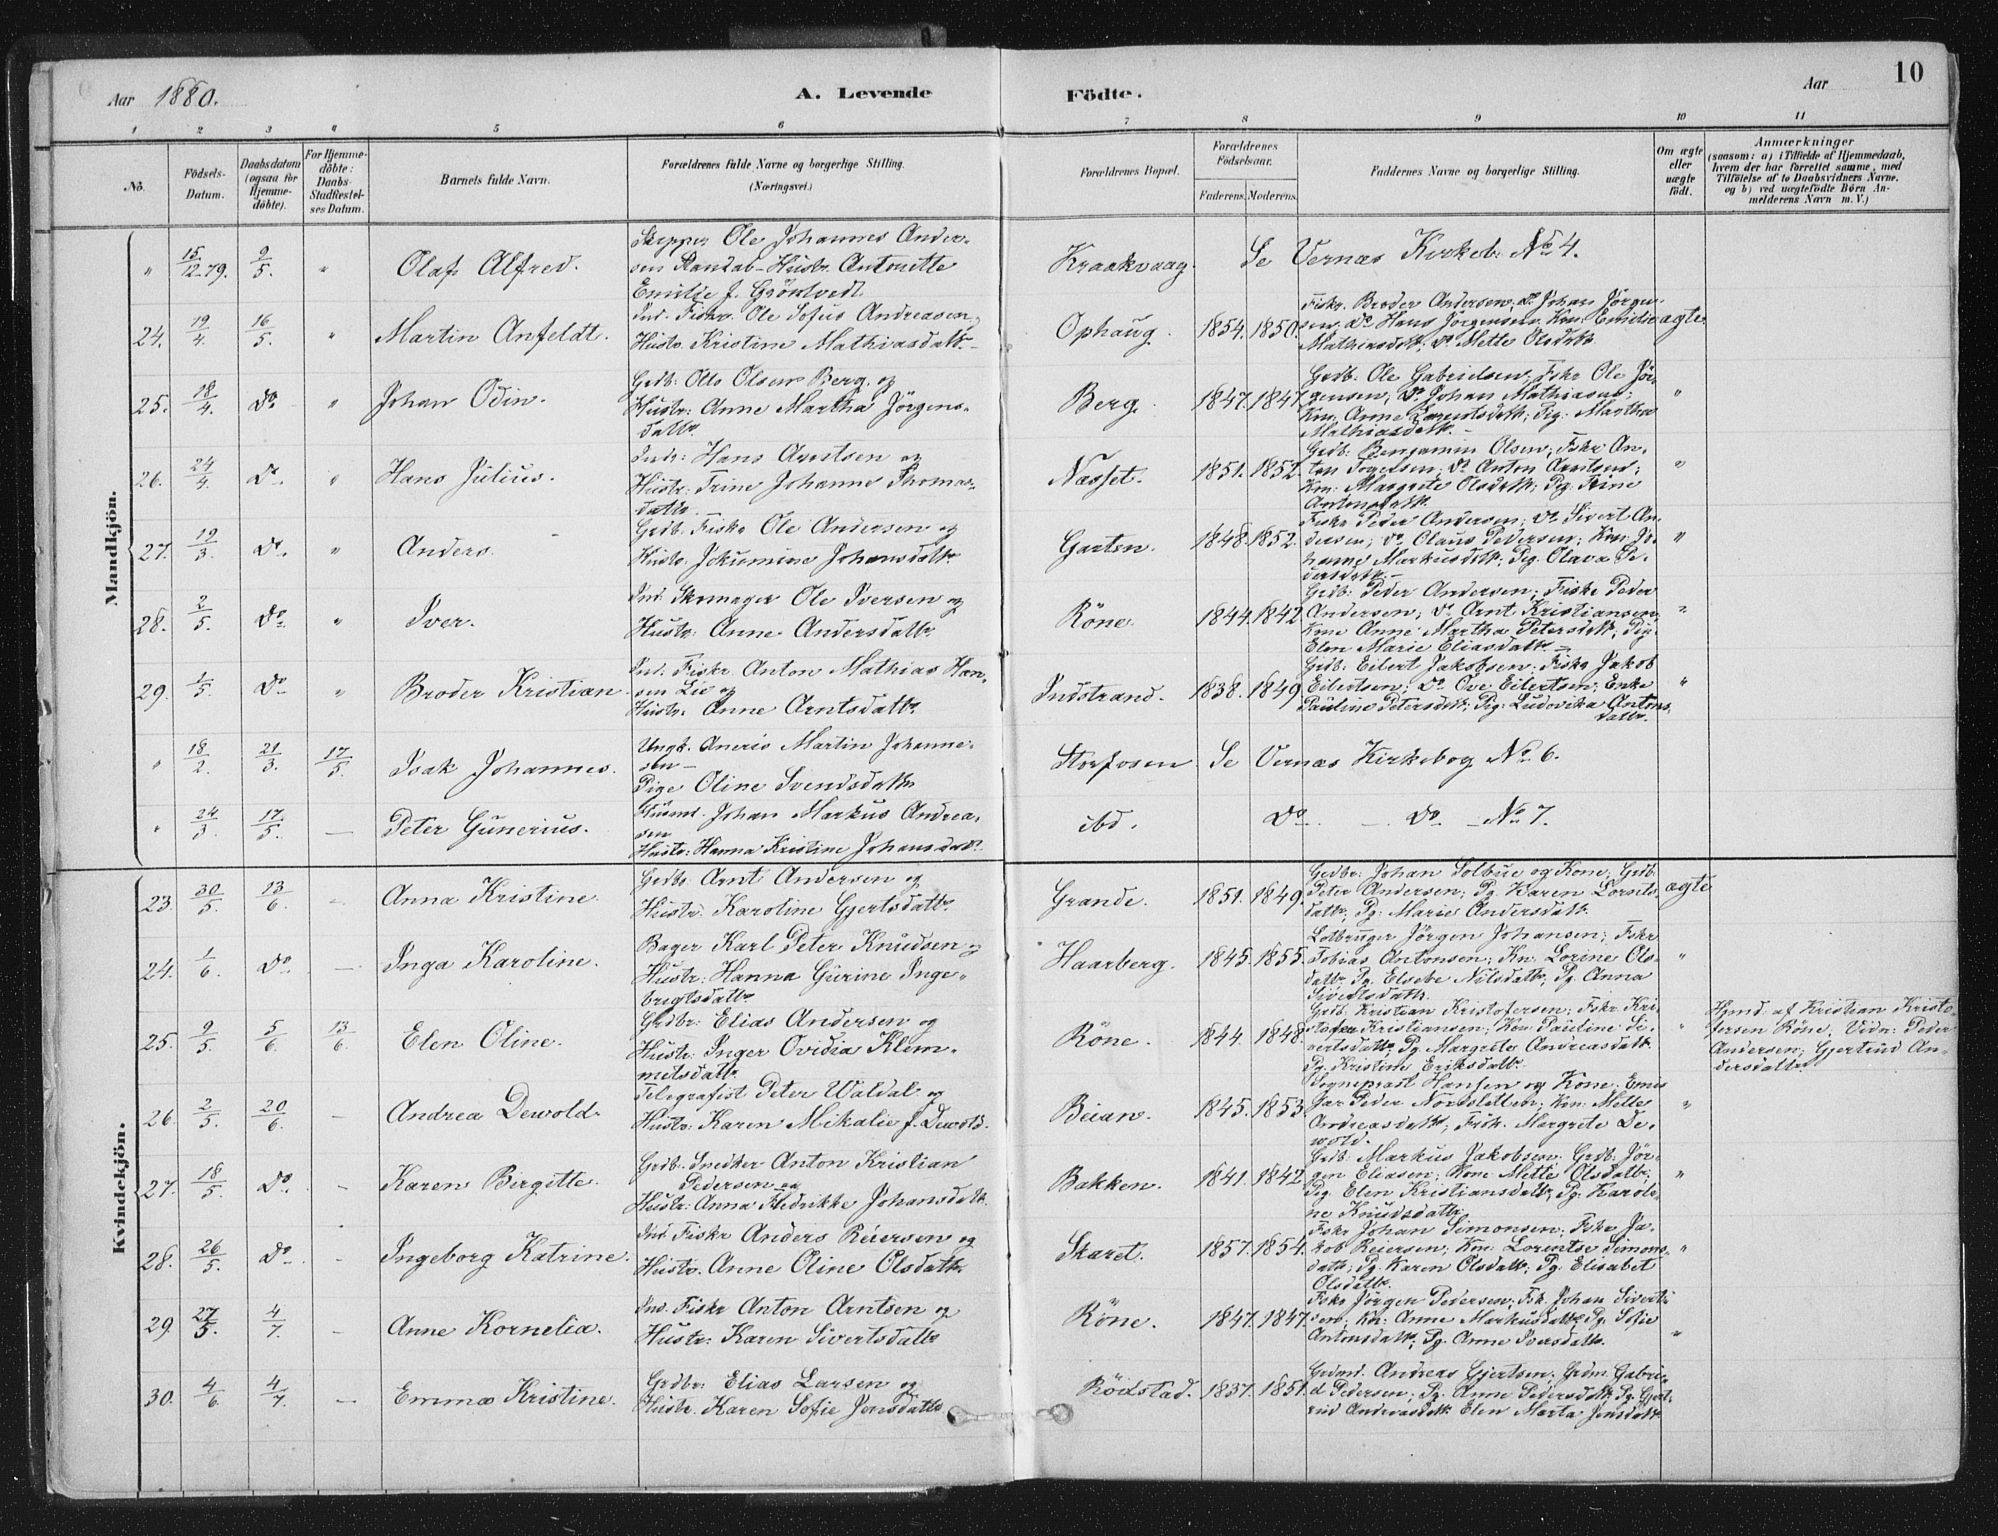 Aar 1880. A. Levende Födte. Aar 10
1 2 3 4 5 6 7 8 9 10 11
No. Födsels-Datum. Daabsdatum (ogsaa for Hjemmedöbte). For Hjemmedöbte: Daabs-Stadfæstelses Datum. Barnets fulde Navn. Forældrenes fulde Navne og borgerlige Stilling. (Næringsvei.) Forældrenes Bopæl. Forældrenes Födselsaar. Faderens. Moderens. Faddernes Navne og borgerlige Stilling. Om ægte eller uægte födt. Anmærkninger
(saasom: a) i Tilfælde af Hjemmedaab, hvem der har forrettet samme, med Tilföielse af to Daabsvidners Navne. og b) ved uægtefödte Börn Anmelderens Navn m. V.)
Mandkjön.
" 15/12-79. 9/5. " Olaf Alfred. Skipper Ole Johannes Ander-
sen - Hustr. Antonette
Emilie J. Gröntvedt
Kraakvaag. Se Vernæs Kirkeb. No 4.
24. 19/4. 16/5. " Martin Anfeldt. Ind. Fiskr. Ole Sofus Andreasen,
Hustr. Kristine Mathiasdatt.
Ophaug. 1854. 1850. Fiskr. Broder Andersen; Do Johan Jörgen-
sen, Do Hans Jörgensen, Kon: Emilie
Mathiasdtt; Do Mette Olsdatt. ægte
25. 18/4. Do " Johan Odin. Grdb: Otto Olsen Berg. og
Hustr: Anne Martha Jörgens-
datt.
Berg. 1847. 1847. Grdb. Ole Gabrielsen; Fskr Ole Jör-
gensen; Do Johan Mathiasen;
Kon. Anne datt; Pig. Martha
Mathiasdatt. "
26. 24/4. Do " Hans Julius. Indr: Hans Arntsen og
Hustr: Trine Johanne Thomas-
datt.
Næsset. 1851. 1852. Grdb: Benjamin Olsen; Fskr An-
ton; Do Anton Arntsen;
Kon: Margrete Olsdatt; Pig.
Antonsdatt. "
27. 19/3. Do " Anders. Grdb. Fiskr Ole Andersen og
Hustr. Jokumine Johansdatt.
Garten. 1848. 1852. Fiskr Peder Andersen; Do Sivert An-
dersen; Do Olaus Pedersen; Kon: Jo-
hanne Markusdatt. Pig. Olava Pe-
dersdatt. "
28. 2/5. Do " Iver. Ind. Skomager Ole Iversen og
Hustr: Anne Andersdatt.
Röne. 1844. 1842. Grdb: Peder Andersen; Fiskr Peder
Andersen; Do Arnt Kristiansen,
Kone Anne Martha Petersdatt, Pig.
Elen Marie Eliasdatt. "
29. 1/5. Do " Broder Kristian. Ind. Fiskr. Anton Mathias Han-
sen Lie og
Hustr. Anne Arntsdatt.
Indstrand. 1838. 1849. Grdb: Eilert Jakobsen. Fiskr Jakob
Eilertsen; Do Ove Eilertsen; Enke
Pauline Petersdatt; Pig: Ludovika Antons-
datt. "
" 18/2. 21/3. 17/5. Isak Johannes. Ungk. Martin Johanne-
sen -
Pige Oline Svendsdatt.
Storfosen Se Vernæs Kirkebog No 6.
" 24/3. 17/5. — Peter Gunerius. Husmd. Johan Markus Andrea-
sen
Hustr: Hanna Kristine Johansdatt.
ibd. Do — Do — No 7.
Kvindekjön.
23. 30/5. 13/6. — Anna Kristine. Grdbr. Arnt Andersen og
Hustr. Karoline Gjertsdatt.
Grande. 1851. 1849. Grdbr: Johan Solbue og Kone; Grdb.
Peter Andersen; Pg. Karen Lornts-
datt; Pg: Marie Andersdatt. ægte
24. 1/6. Do — Inga Karoline. Bager Karl Peter Knudsen og
Hustr: Hanna Gurine Inge-
brigtsdatt.
Haarberg. 1845. 1855. Jörgen Johansen; Fskr
Tobias Antonsen; Kn. Lorine Ols-
datt. Pg. Elsebe Nilsdatt, Pg. Anna
Sivertsdatt. "
25. 9/5. 5/6. 13/6. Elen Oline. Grdbr: Elias Andersen og
Hustr: Inger Ovidia Klem-
metsdatt.
Röne. 1844. 1848. Grdb. Kristian Kristofersen; Fskr Kri-
stofer Kristiansen; Kon Pauline Si-
vertsdatt; Pg. Margrete Andreasdatt.
Pg. Kristine Eriksdatt. "
Hjmd. af Kristian Kristo-
fersen Röne, Vidn: Peder
Andersen; Gjertrud An-
dersdatt.
26. 2/5. 20/6. — Andrea Dewold. Telegrafist Peter Waldal og
Hustr: Karen Mikalie f. Dewold.
Beian. 1845. 1853. Sogneprest Hansen og Kone;
Peder Nordsletten; Kon: Mette
Andreasdatt; Frk. Margrete De-
wold. "
27. 18/5. Do — Karen Birgitte. Grdb. Snedker Anton Kristian
Pedersen og
Hustr: Anna Fredrikke Johansdatt.
Bakken. 1841. 1842. Grdb: Markus Jakobsen. Grdb: Jör-
gen Eliasen; Kone Mette Olsdatt;
Pig. Elen Kristiansdatt, Pg. Karoli-
ne Knudsdatt. "
28. 26/5. Do — Ingeborg Katrine. Ind. Fiskr Anders Reiersen og
Hustr. Anne Oline Olsdatt.
Skaret. 1857. 1854. Fskr Johan Simonsen; Fskr Ja-
kob Reiersen; Kon: Lorentse Simons-
datt; Pg. Karen Olsdatt; Pg. Elisabet
Olsdatt. "
29. 27/5. 4/7. — Anne Kornelia. Ind. Fiskr Anton Arntsen og
Hustr: Karen Sivertsdatt.
Röne. 1847. 1847. Fskr Jörgen Pedersen; Fsk. Johan Sivert-
sen; Kn: Anne Markusdatt; Pg. Sofie
Antonsdatt; Pg. Anne Iversdatt. "
30. 4/6. 4/7. — Emma Kristine. Grdbr: Elias Larsen og
Hustr. Karen Sofie Jensdatt.
Rödstad. 1837. 1851. Grdmd. Andreas Gjertsen; Grdm. Gabri-
el Pedersen; Pg. Anne Pedersdatt, Pg. Gjert-
rud Andreasdatt. Elen Marta Jensdatt.